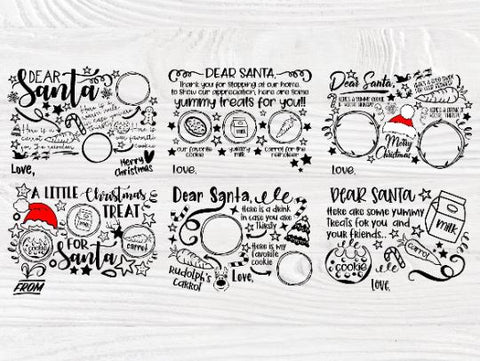 DEAR
Santa
Here is a
Merry
Christmas
Love,
DEAR SANTA,
Thank you for stopping at our home.
to show our appreciation, here are some
yummy treats for you!!
our favorite
cookie
glass of
milk
Carrot for the
reindeer
Love,
Dear Santa,
Merry
Christmas
Love,
A LITTLE Christmas
TREAT
FOR
Santa
carrot
FROM
Dear Santa,
Here is a drink
in case you are
Thirsty
Here is my
favorite
cookie
Rudolph's
Carrot
Love,
DEAR SANTA
Here are some yummy
Treats for you and
your friends..
MILK
cookie
Carrot
Love,